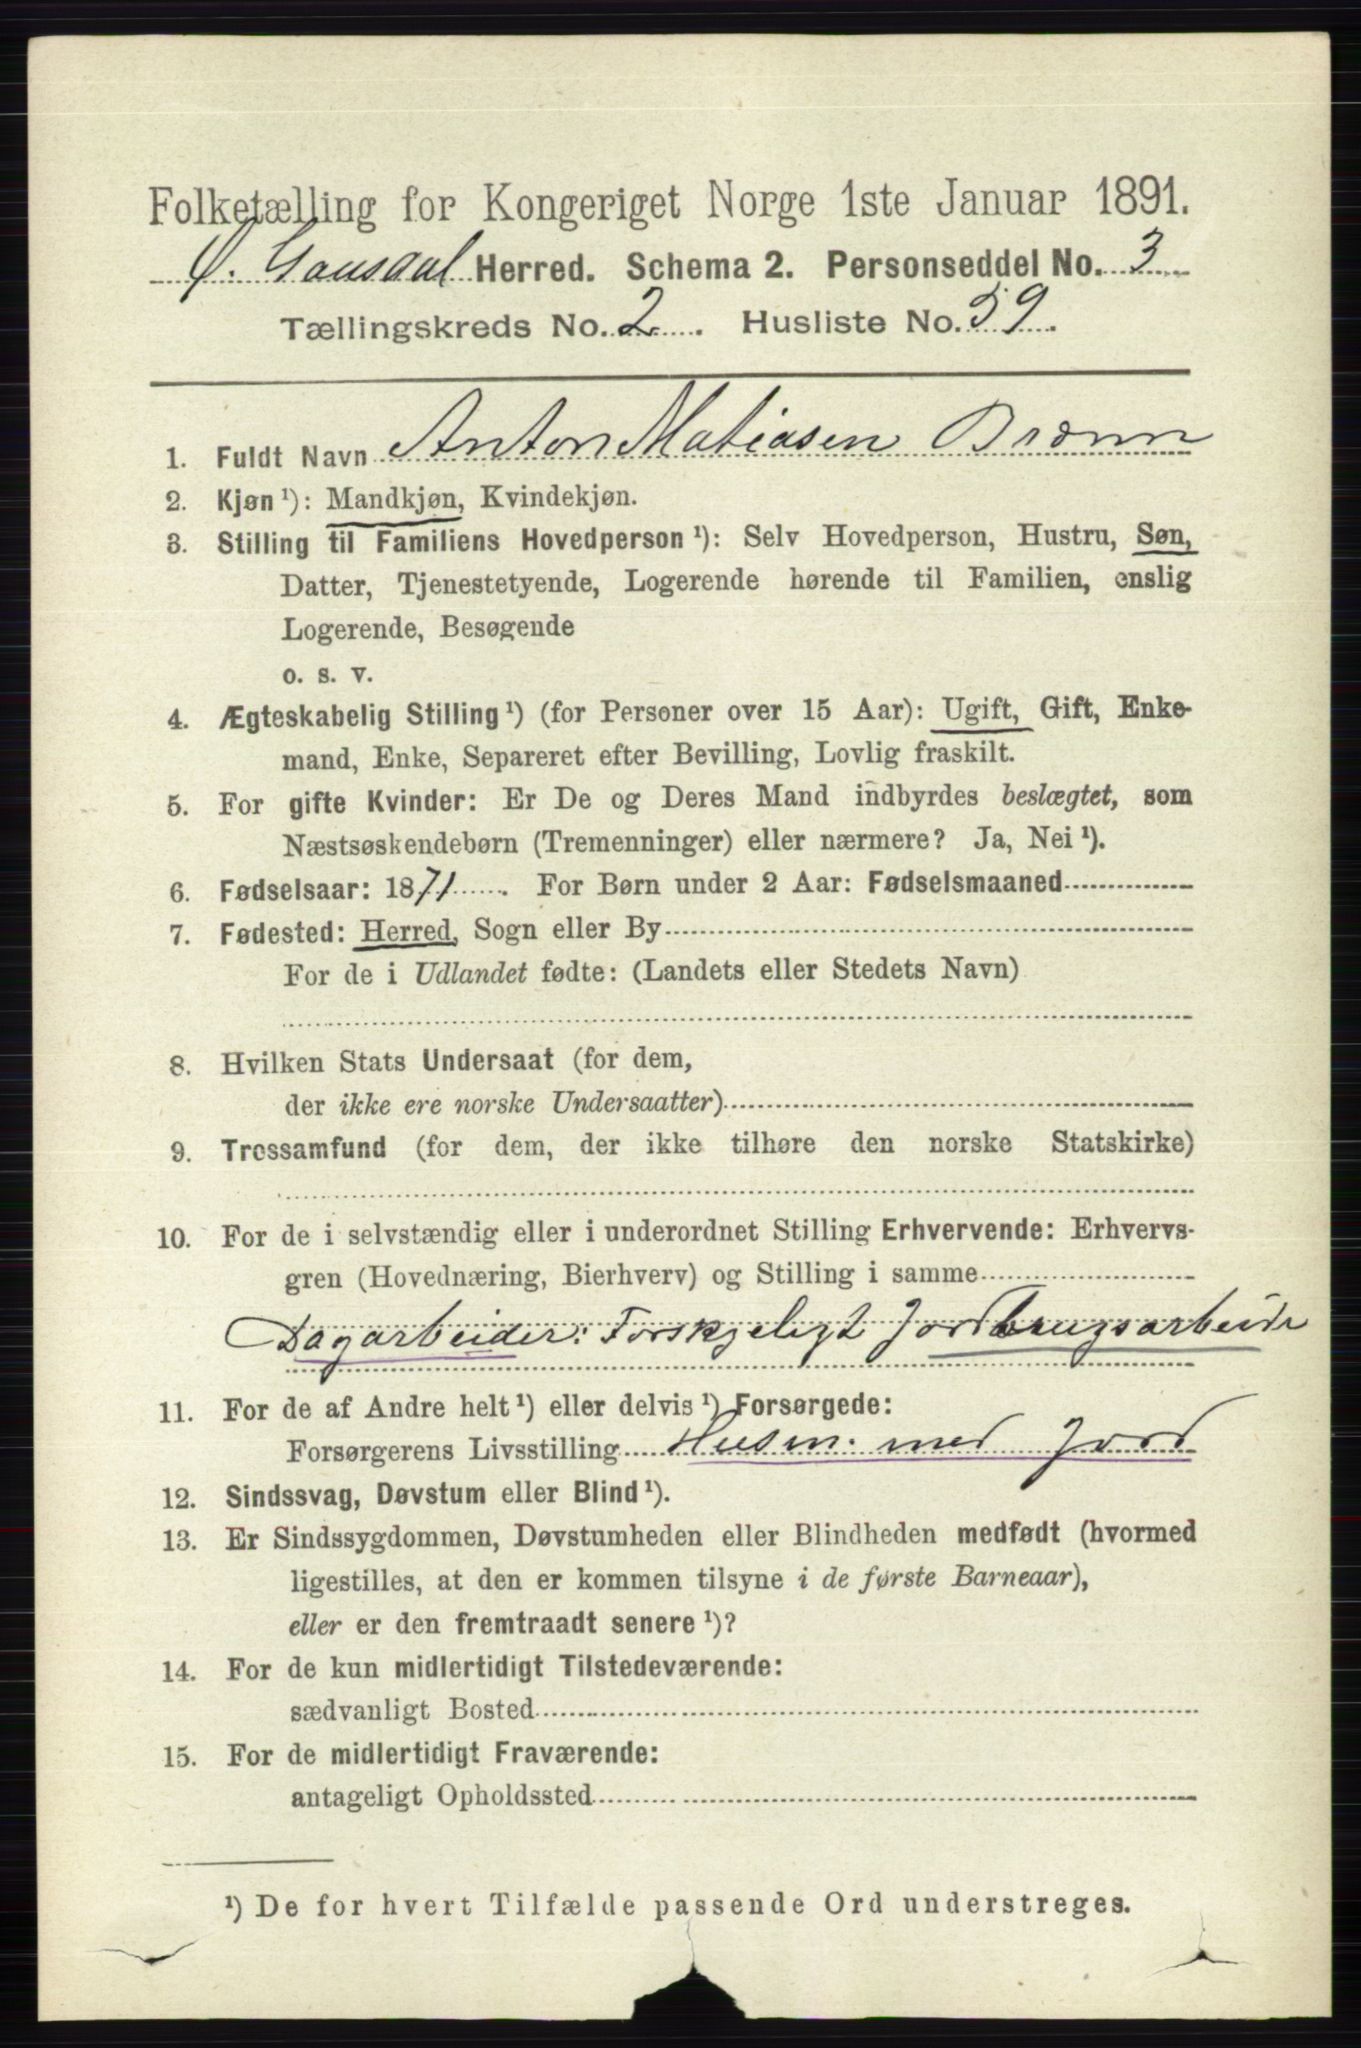 Folketælling for Kongeriget Norge 1ste Januar 1891.
Ø. Gausdal Herred. Schema 2. Personseddel No. 3
Tællingskreds No. 2. Husliste No. 59.
1. Fuldt Navn Anton Matiasen Brænn
2. Kjøn¹): Mandkjøn, Kvindekjøn.
3. Stilling til Familiens Hovedperson¹): Selv Hovedperson, Hustru, Søn,
Datter, Tjenestetyende, Logerende hørende til Familien, enslig
Logerende, Besøgende
o. s. v.
4. Ægteskabelig Stilling¹) (for Personer over 15 Aar): Ugift, Gift, Enke-
mand, Enke, Separeret efter Bevilling, Lovlig fraskilt.
5. For gifte Kvinder: Er De og Deres Mand indbyrdes beslægtet, som
Næstsøskendebørn (Tremenninger) eller nærmere? Ja, Nei¹).
6. Fødselsaar: 1871. For Børn under 2 Aar: Fødselsmaaned
7. Fødested: Herred, Sogn eller By
For de i Udlandet fødte: (Landets eller Stedets Navn)
8. Hvilken Stats Undersaat (for dem,
der ikke ere norske Undersaatter)
9. Trossamfund (for dem, der ikke tilhøre den norske Statskirke)
10. For de i selvstændig eller i underordnet Stilling Erhvervende: Erhvervs-
gren (Hovednæring, Bierhverv) og Stilling i samme
Dagarbeider: Forskjeligt Jordbrugsarbeide
11. For de af Andre helt¹) eller delvis¹) Forsørgede:
Forsørgerens Livsstilling Husm. med Jord
12. Sindssvag, Døvstum eller Blind¹).
13. Er Sindssygdommen, Døvstumheden eller Blindheden medfødt (hvormed
ligestilles, at den er kommen tilsyne i de første Barneaar),
eller er den fremtraadt senere¹)?
14. For de kun midlertidigt Tilstedeværende:
sædvanligt Bosted
15. For de midlertidigt Fraværende:
antageligt Opholdssted
¹) De for hvert Tilfælde passende Ord understreges.